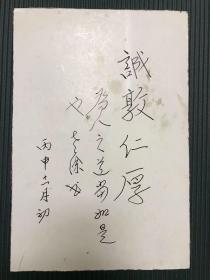 誠敦仁厚
为人之道當如是
也
丙申六月初